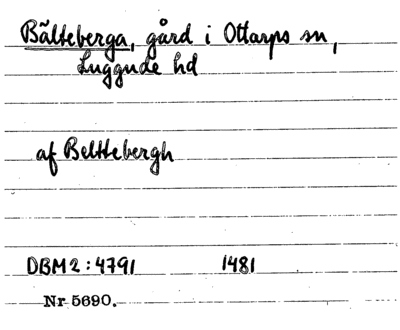 Bälteberga, gård i Ottarps sn,
Luggude hd
af Belttebergh
DBM2:4791 1481
Nr 5690.